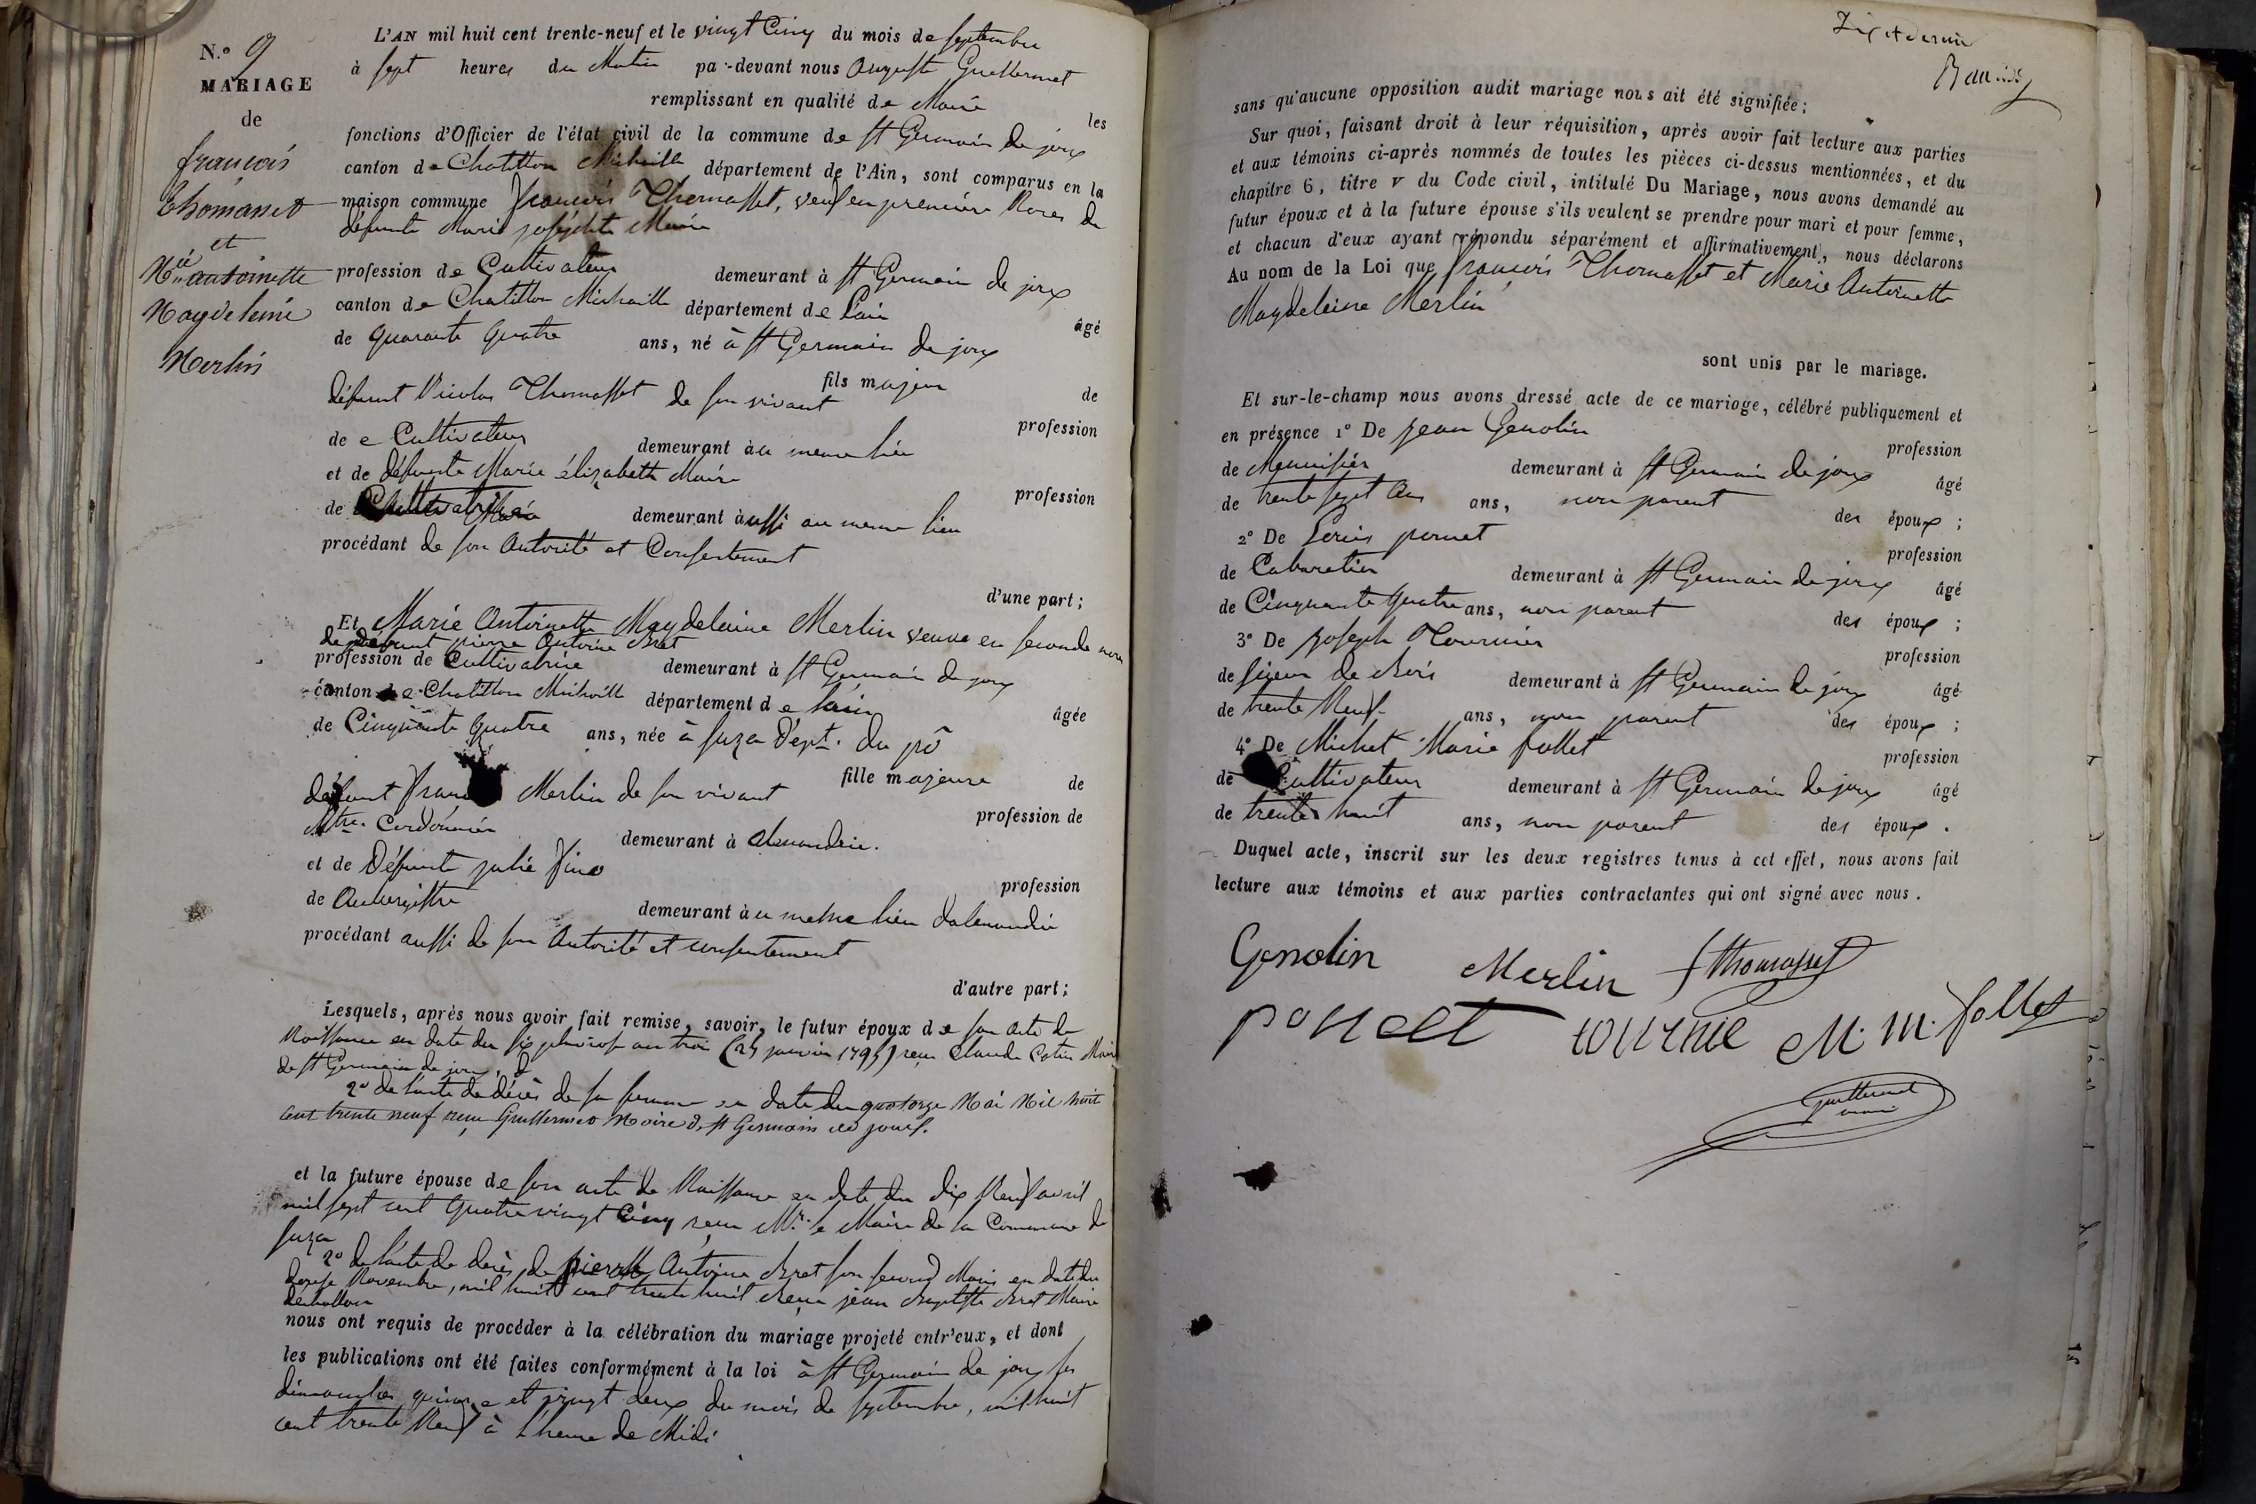 N.º 9
MARIAGE
de
françois
thomasset
et
M.ie antoinette
Magdeleine
Merlin
L'AN mil huit cent trente-neuf et le vingt Cinq du mois de septembre
à sept heures du Matin par-devant nous Auguste Guillermet
remplissant en qualité de Maire les
fonctions d'Officier de l'état civil de la commune de St Germain de joux
canton de Chatillon Michaille département de l'Ain, sont comparus en la
maison commune françois Thomasset, veuf en première Noces de
défunte Marie josephte Maire
profession de Cultivateur demeurant à St Germain de joux
canton de Chatillon Michaille département de l'ain âgé
de quarante quatre ans, né à St Germain de joux
fils majeur de
défunt Nicolas Thomasset de son vivant profession
de Cultivateur demeurant au meme lieu
et de défunte Marie élizabeth Maire profession
de demeurant aussi au meme lieu
procédant de son Autorité et Consentement
d'une part;
Et Marie Antoinette Magdelaine Merlin veuve en seconde noces
de défunt pierre Antoine Bret
profession de Cultivatrice demeurant à St Germain de joux
canton de Chatillon Michaille département de l'ain âgée
de Cinquante quatre ans, née à suza Dept. du pô
fille majeure de
défunt françois Merlin de son vivant profession de
Mtre. Cordonnier demeurant à alexandrie.
et de Défunt julie fino profession
de Aubergiste demeurant au meme lieu dalexandrie
procédant aussi de son Autorité et consentement
d'autre part;
Lesquels, après nous avoir fait remise, savoir, le futur époux de son acte de
Naissance en date du six pluviose an trois (25 janvier 1795) reçu Claude Cotin Maire
de St Germain de joux,
2º de l'acte de décès de sa femme en date du quatorze Mai Mil huit
cent trente neuf reçu Guillermet Maire de St Germain de joux.
et la future épouse de son acte de Naissance en date du dix Neuf avril
mil sept cent quatre vingt Cinq reçu Mr. le Maire de la Commune de
suza
2º de l'acte de décès de pierre Antoine Bret son second Mari en date du
douze Novembre, mil huit cent trente huit reçu jean Baptiste Bret Maire
nous ont requis de procéder à la célébration du mariage projeté entr'eux, et dont
les publications ont été faites conformément à la loi à St Germain de joux les
dimanches quinze et vingt deux du mois de septembre, mil huit
cent trente Neuf à l'heure de Midi
Dix et dernier
sans qu'aucune opposition audit mariage nous ait été signifiée;
Sur quoi, faisant droit à leur réquisition, après avoir fait lecture aux parties
et aux témoins ci-après nommés de toutes les pièces ci-dessus mentionnées, et du
chapitre 6, titre v du Code civil, intitulé Du Mariage, nous avons demandé au
futur époux et à la future épouse s'ils veulent se prendre pour mari et pour femme,
et chacun d'eux ayant répondu séparément et affirmativement, nous déclarons
Au nom de la Loi que françois Thomasset et Marie Antoinette
Magdeleine Merlin
sont unis par le mariage.
Et sur-le-champ nous avons dressé acte de ce mariage, célébré publiquement et
en présence 1º De jean Genolin profession
de Menuisier demeurant à St Germain de joux âgé
de trente sept ans ans, non parent des époux;
2º De Louis poncet profession
de Cabaretier demeurant à St Germain de joux âgé
de Cinquante quatre ans, non parent des époux;
3º De joseph Tournier profession
de sieur de Bois demeurant à St Germain de joux âgé
de trente Neuf ans, non parent des époux;
4º De Michel Marie follet profession
de Cultivateur demeurant à St Germain de joux âgé
de trente huit ans, non parent des époux.
Duquel acte, inscrit sur les deux registres tenus à cet effet, nous avons fait
lecture aux témoins et aux parties contractantes qui ont signé avec nous.
Genolin Merlin f thomasset
poncet tournie M. M. follet
Guillermet
maire